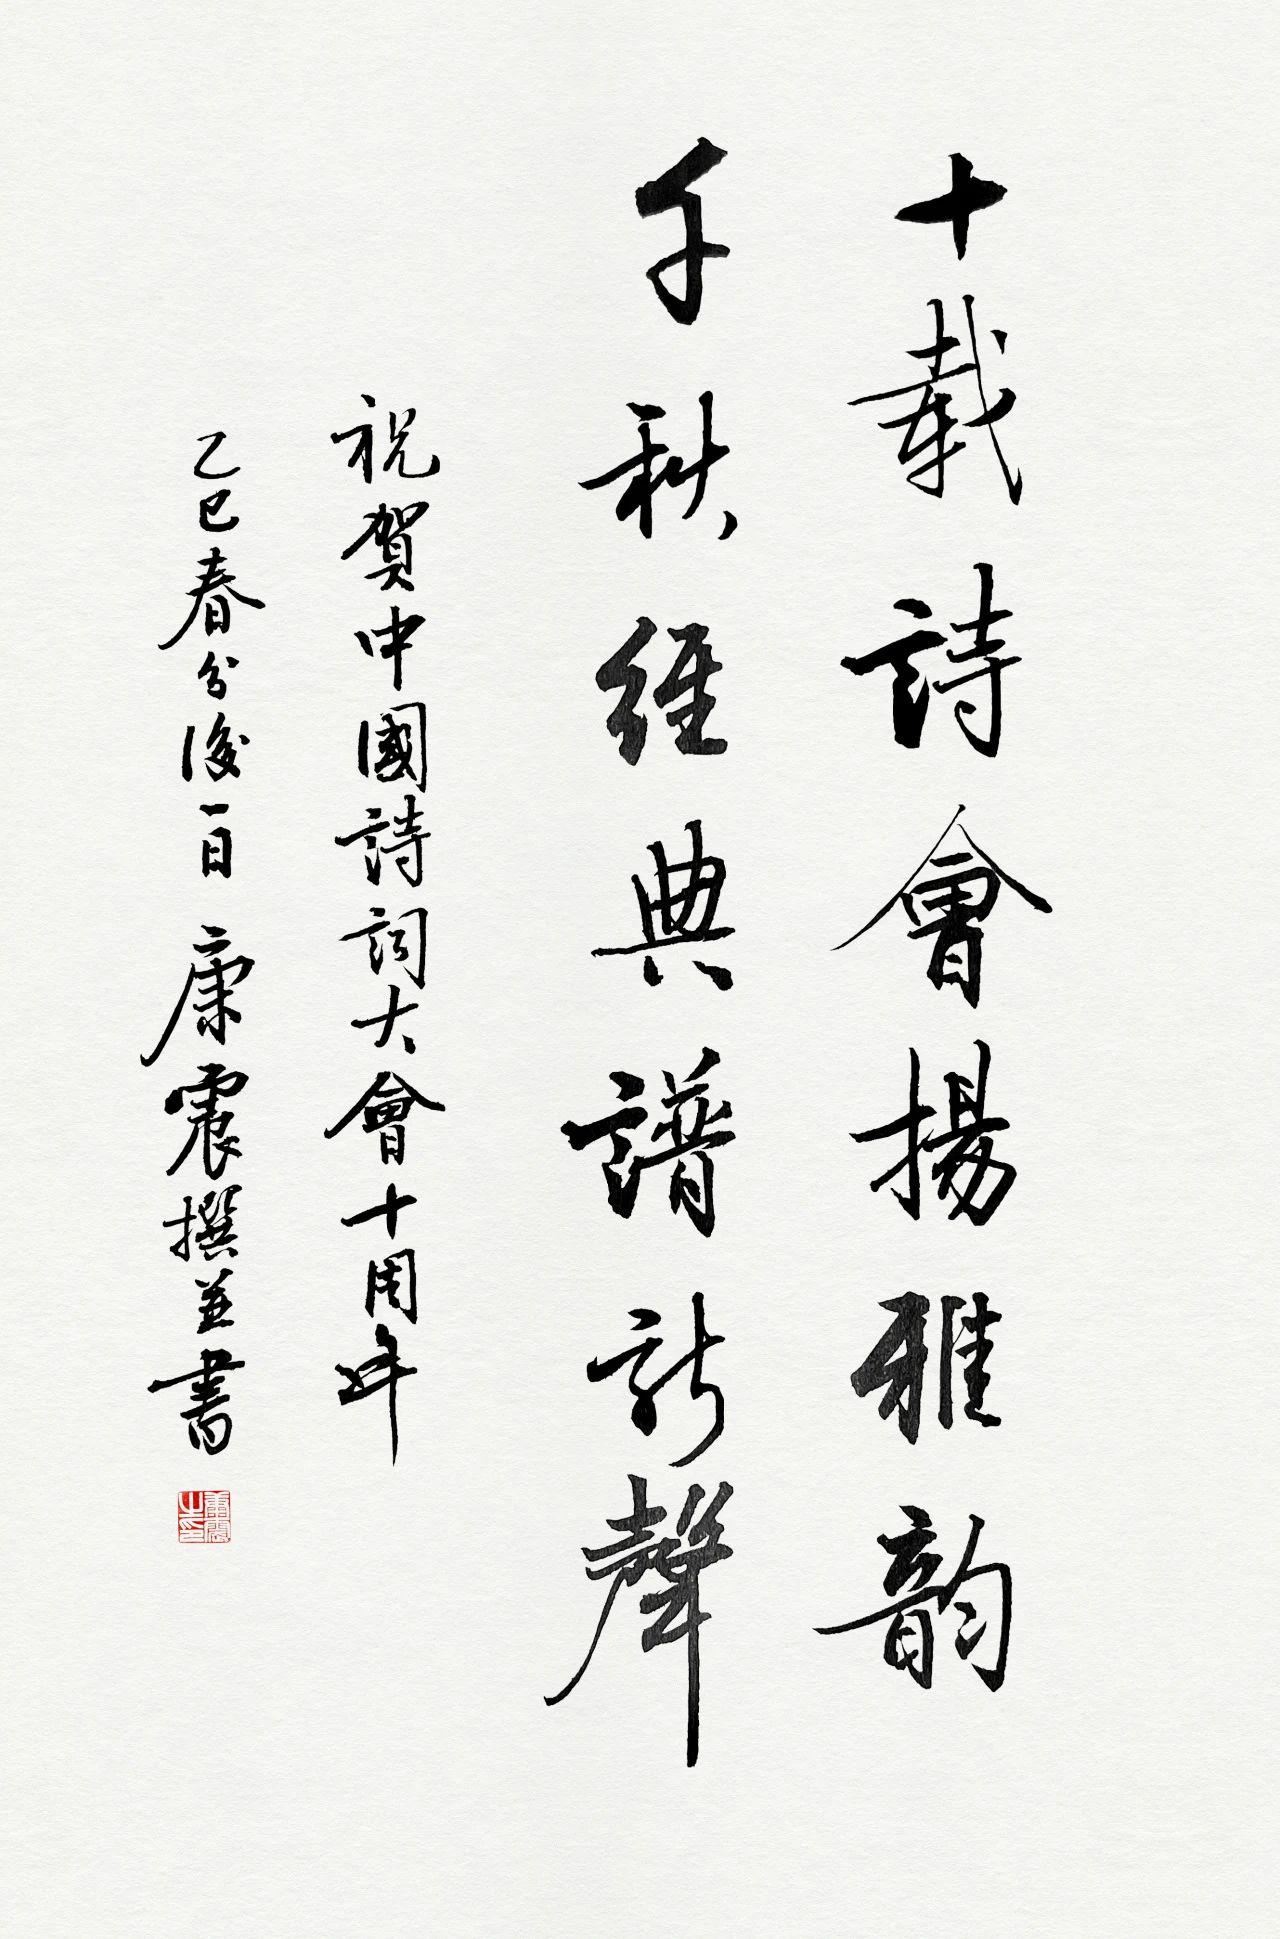 十載詩會揚雅韵
千秋經典譜新聲
祝賀中國詩詞大會十周年
乙巳春分後一日 康震撰並書
康震之印